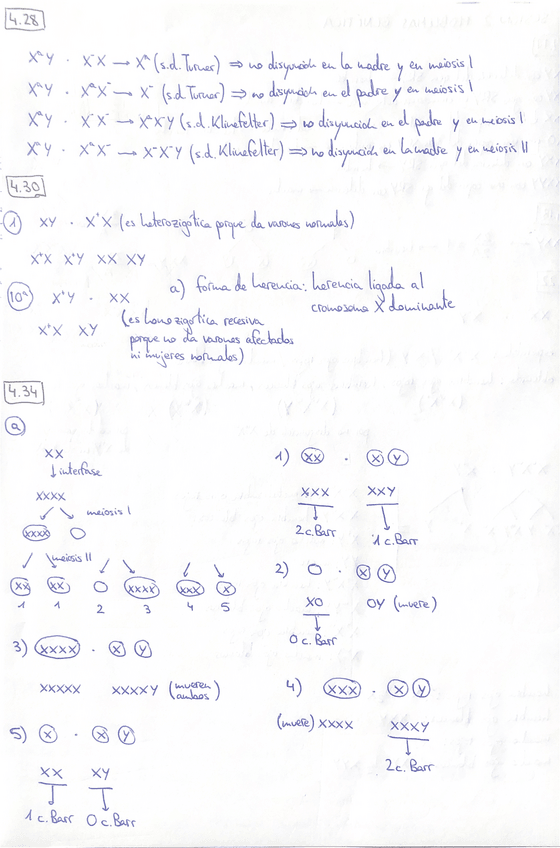 4.28
XᵃY · X⁻X → Xᵃ (s.d. Turner) ⇒ no disyunción en la madre y en meiosis I
XᵃY · XᵃX⁻ → X⁻ (s.d. Turner) ⇒ no disyunción en el padre y en meiosis I
XᵃY · X⁻X⁻ → XᵃX⁻Y (s.d. Klinefelter) ⇒ no disyunción en el padre y en meiosis I
XᵃY · XᵃX⁻ → X⁻X⁻Y (s.d. Klinefelter) ⇒ no disyunción en la madre y en meiosis II
4.30
1 XY · X⁺X (es heterozigótica porque da varones normales)
X⁺X X⁺Y XX XY
10ª X⁺Y · XX
a) forma de herencia: herencia ligada al
cromosoma X dominante
X⁺X XY
(es homozigótica recesiva
porque no da varones afectados
ni mujeres normales)
4.34
a
XX
↓ interfase
XXXX
meiosis I
XXXX O
meiosis II
XX XX O XXXX XXX X
1 1 2 3 4 5
1) XX · X Y
XXX XXY
2 c. Barr 1 c. Barr
2) O · X Y
XO OY (muere)
0 c. Barr
3) XXXX · X Y
XXXXX XXXXY (mueren
ambos)
4) XXX · X Y
(muere) XXXX XXXY
2 c. Barr
5) X · X Y
XX XY
1 c. Barr 0 c. Barr